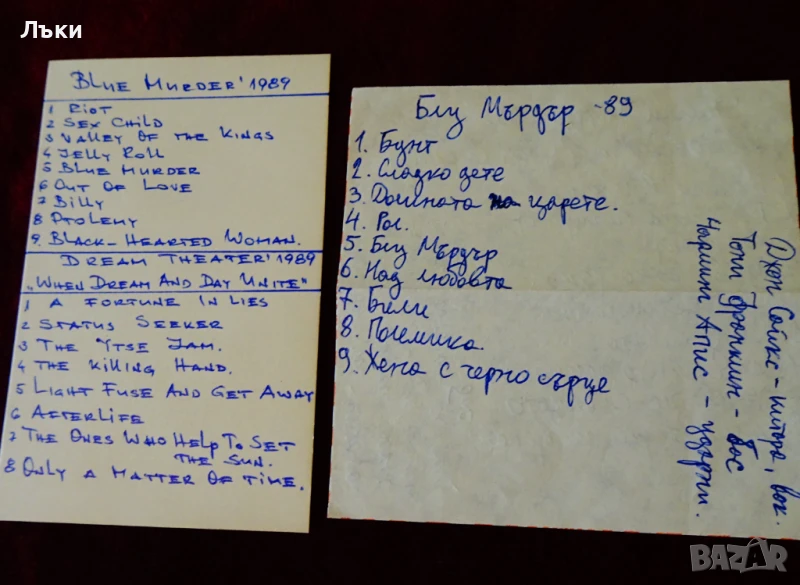 Лъки
BLUE MURDER' 1989
1 RIOT
2 SEX CHILD
3 VALLEY OF THE KINGS
4 JELLY ROLL
5 BLUE MURDER
6 OUT OF LOVE
7 BILLY
8 PTOLEMY
9. BLACK-HEARTED WOMAN.
DREAM THEATER' 1989
„WHEN DREAM AND DAY UNITE"
1 A FORTUNE IN LIES
2 STATUS SEEKER
3 THE YTSE JAM.
4 THE KILLING HAND.
5 LIGHT FUSE AND GET AWAY
6 AFTERLIFE
7 THE ONES WHO HELP TO SET
THE SUN.
8 ONLY A MATTER OF TIME.
Блу Мърдър -89
1. Бунт
2. Сладко дете
3. Долината на царете.
4. Рол.
5. Блу Мърдър
6. Над любовта
7. Били
8. Полемика.
9. Жена с черно сърце
Джон Сайкс - китара, вок.
Тони Франклин - бас
Кармин Апис - ударни.
BAZAR